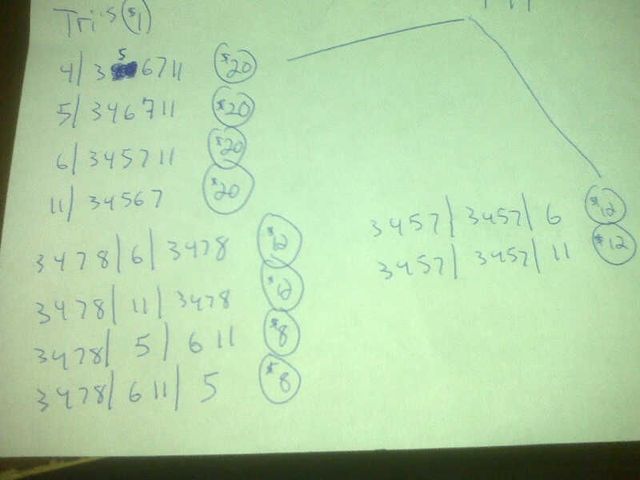 Tri's $1
4/ 3 5 6 7 11 $20
5/ 3 4 6 7 11 $20
6/ 3 4 5 7 11 $20
11/ 3 4 5 6 7 $20
3478/ 6/ 3478 $12
3478/ 11/ 3478 $12
3478/ 5/ 6 11 $8
3478/ 6 11/ 5 $8
3457/ 3457/ 6 $12
3457/ 3457/ 11 $12